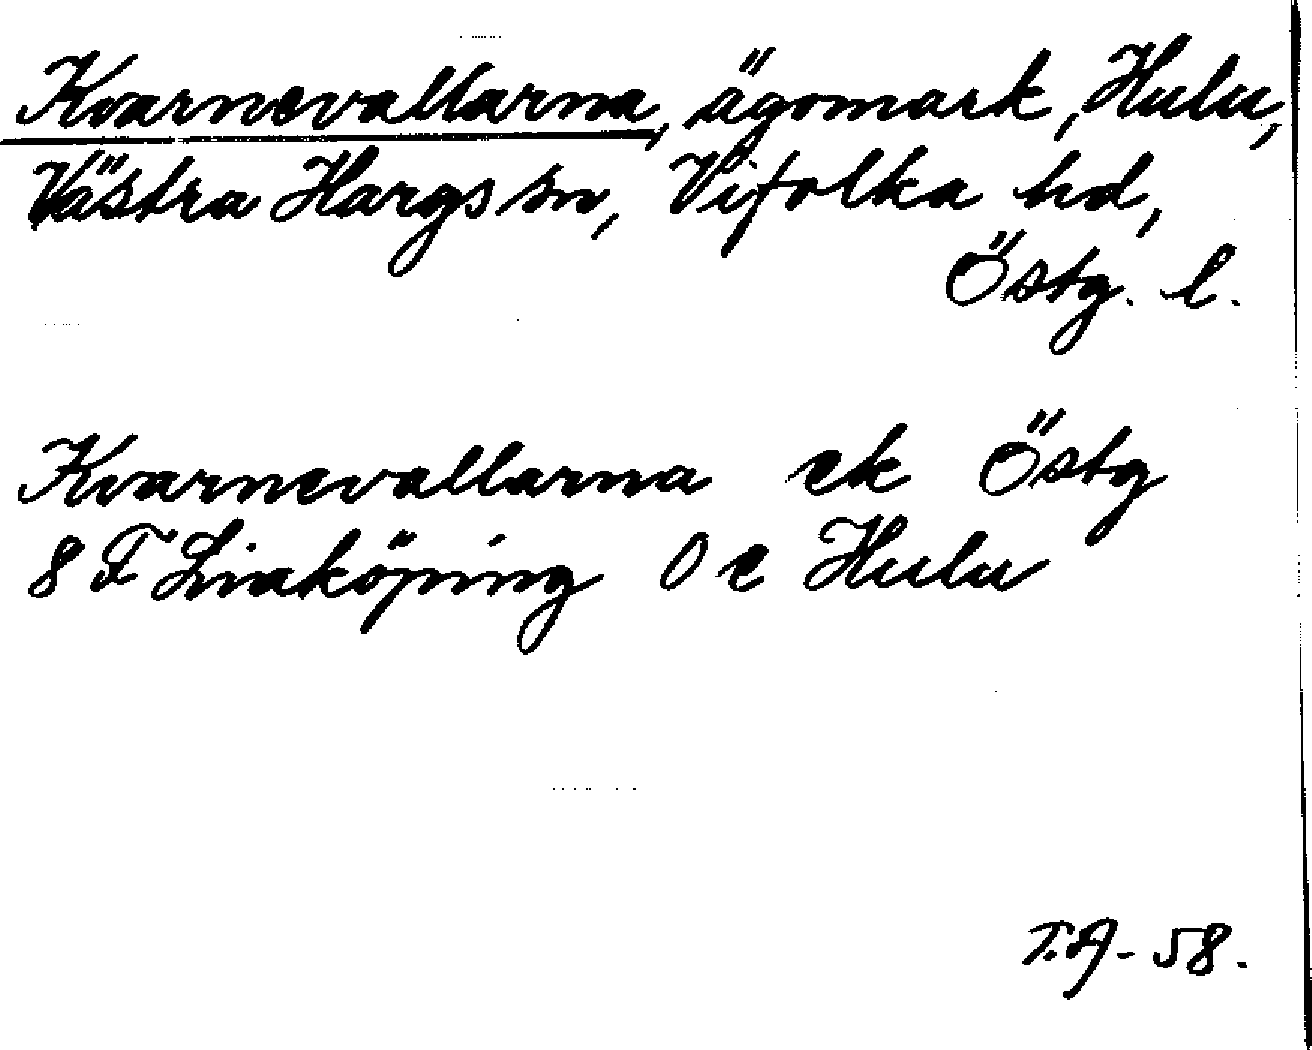 Kvarnevallarna, ägomark, Hulu,
Västra Hargs sn, Vifolka hd,
Östg. l.
Kvarnevallarna ek Östg
8 F Linköping 0 e Hulu
T.A- 58.